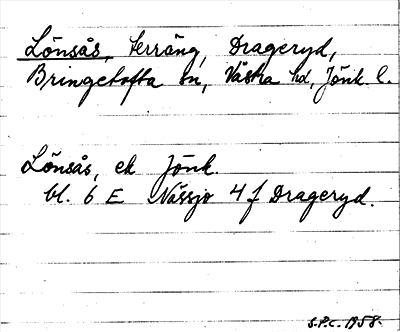 Lönsås, terräng, Drageryd,
Bringetofta sn, Västra hd, Jönk l.
Lönsås, ek Jönk.
bl. 6 E Nässjö 4 f Drageryd.
S.P.C. 1958.